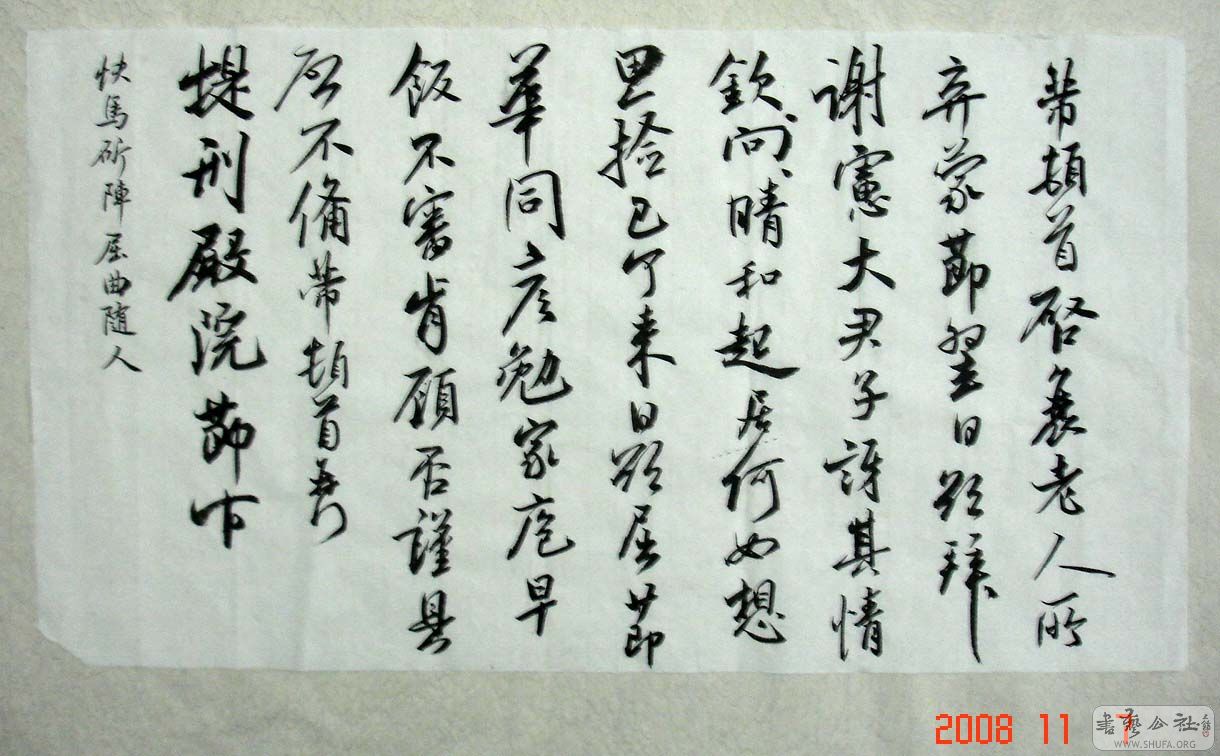 芾頓首啓衰老人所
弃蒙節翌日欲拜
謝憲大尹子訝其情
欽向晴和起居何如想
思拾已了来日欲屈節
華同彦勉家庖早
飯不審肯顧否謹具
啓不備芾頓首再
提刑殿院節下
快馬斫陣屈曲随人
2008 11 7
書藝公社
WWW.SHUFA.ORG